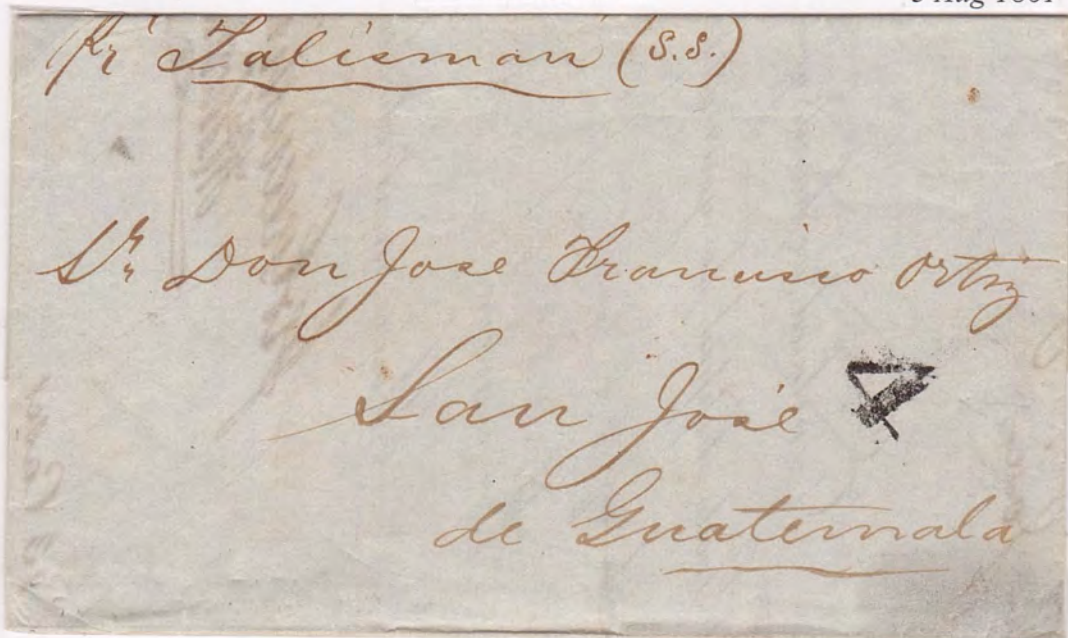 pr Talisman (S.S.)
Sr. Don Jose Francisco Ortiz
San José
de Guatemala